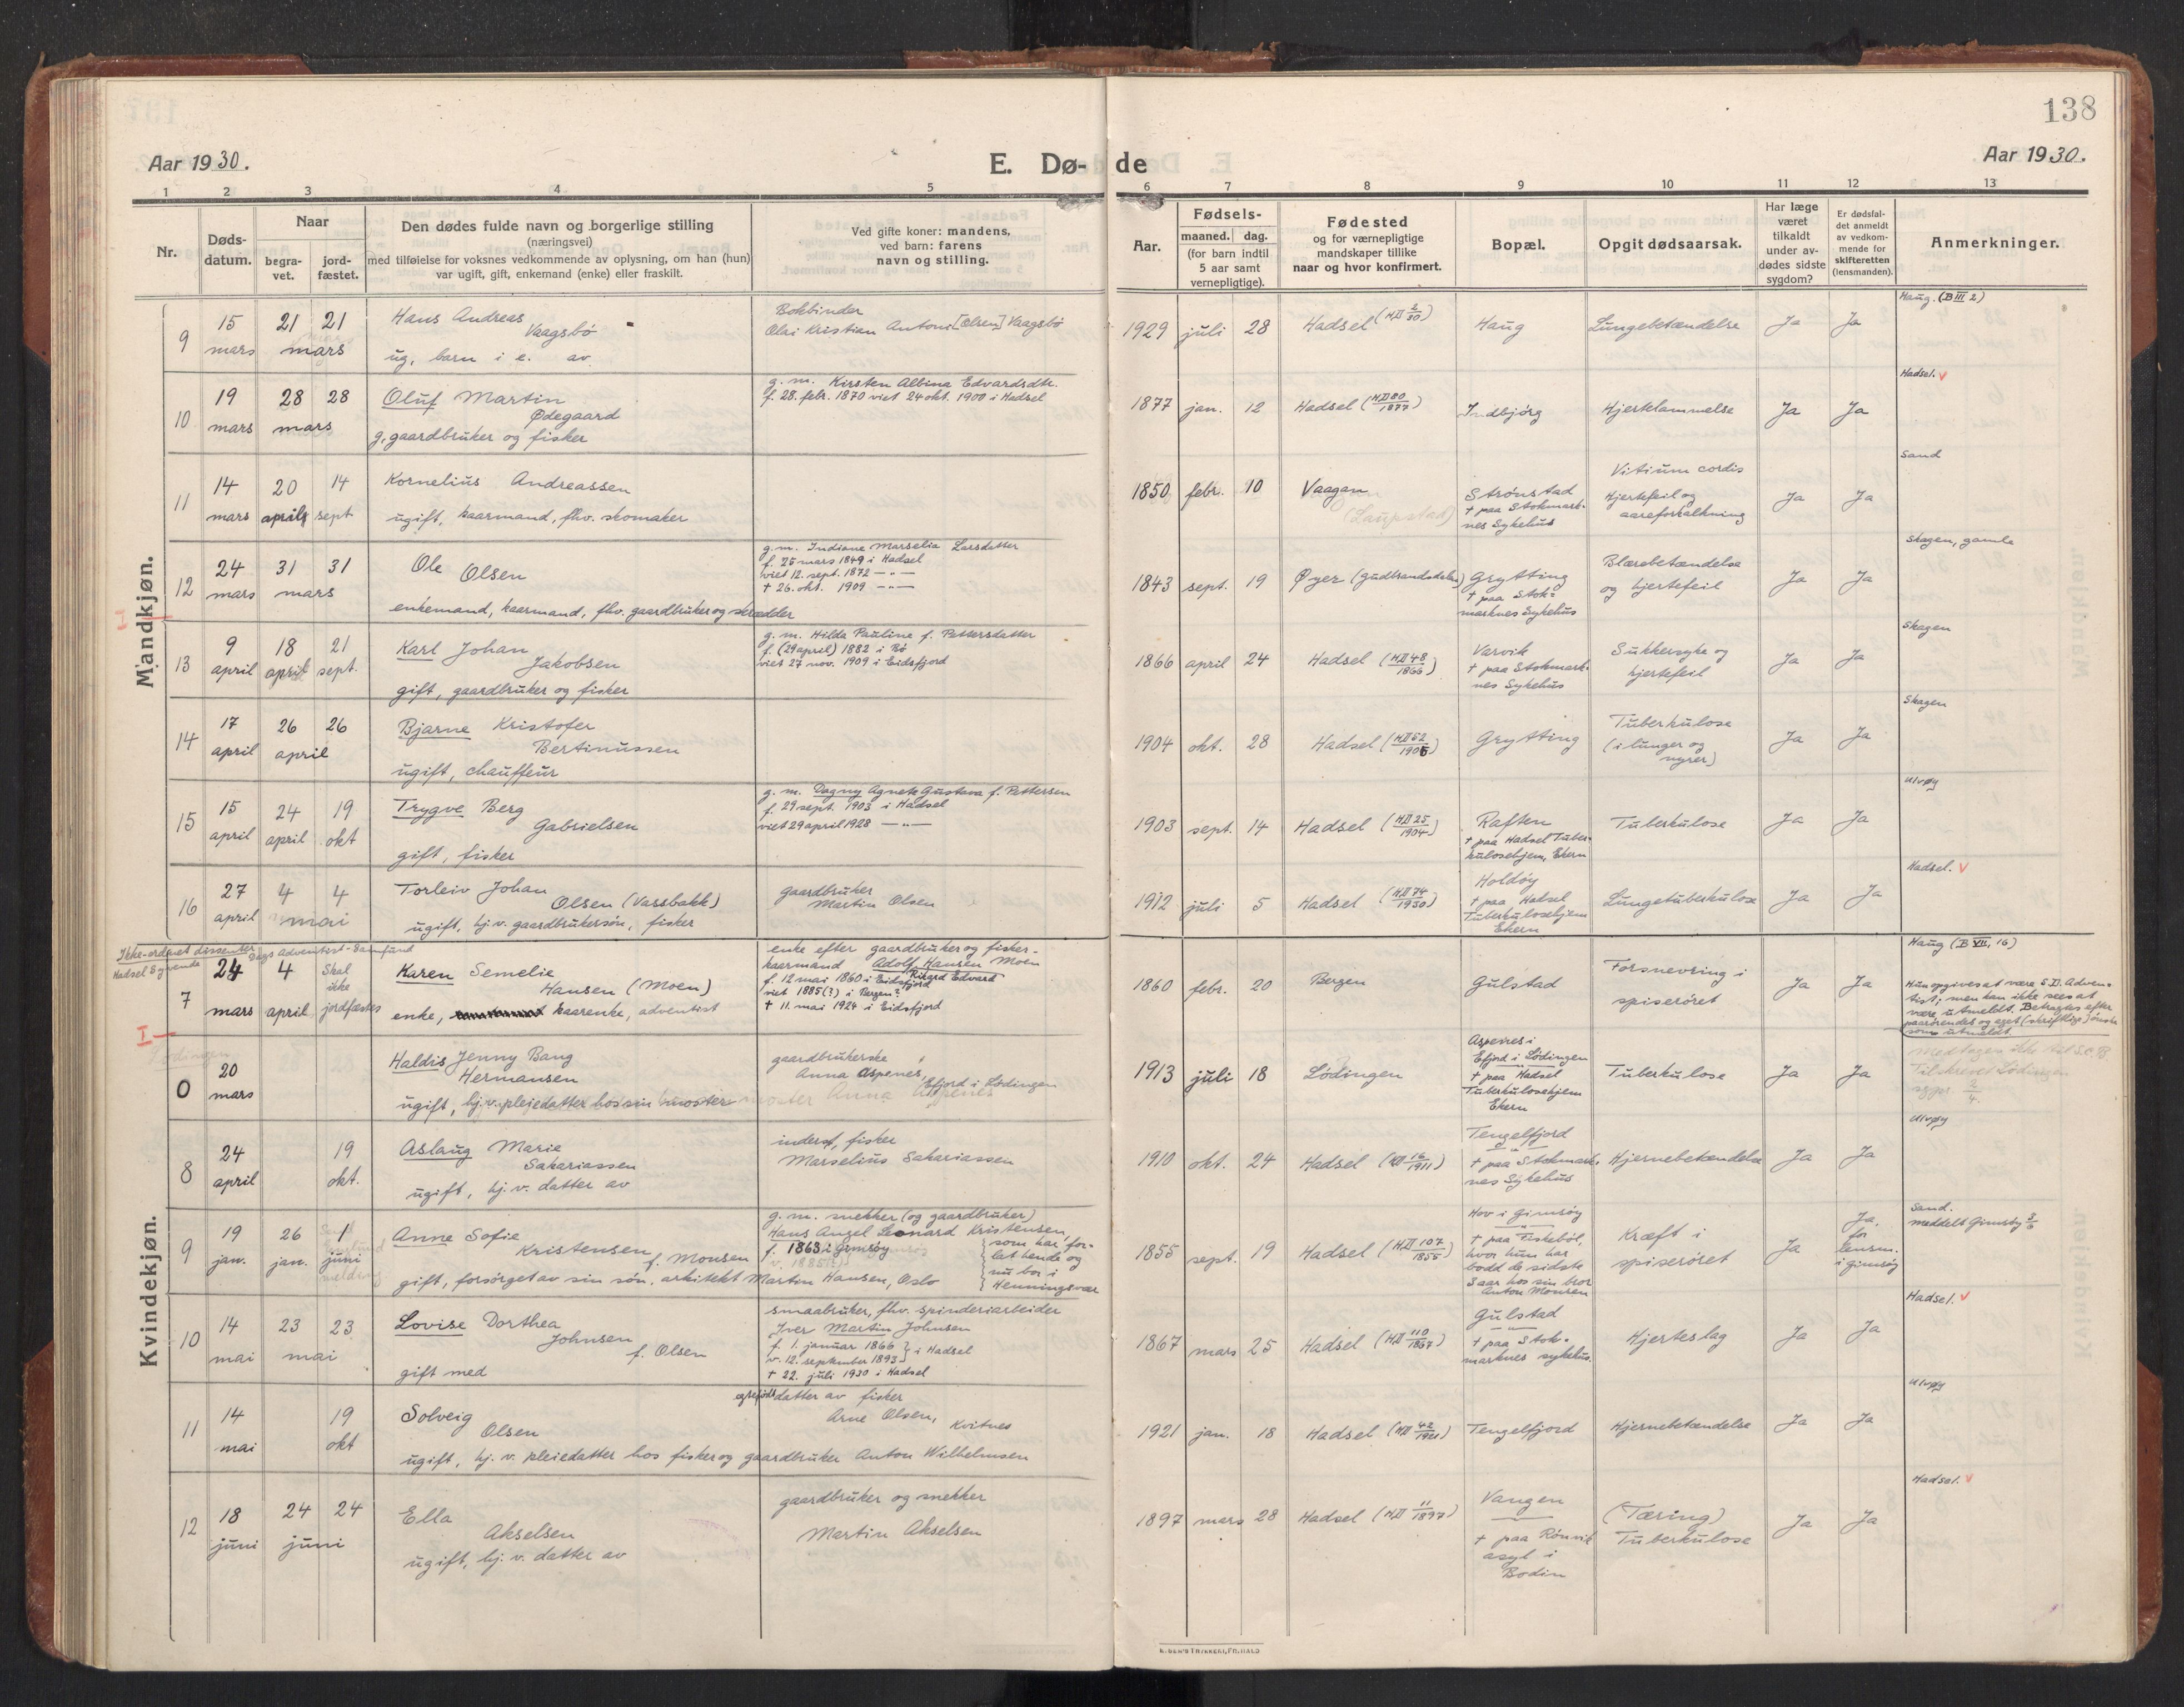 138
Aar 1930.
E. Dø- de
Aar 1930.
1 2 3 4 5 6 7 8 9 10 11 12 13
Nr.
Døds-
datum.
Naar
begra-
vet.
jord-
fæstet.
Den dødes fulde navn og borgerlige stilling
(næringsvei)
med tilføielse for voksnes vedkommende av oplysning, om han (hun)
var ugift, gift, enkemand (enke) eller fraskilt.
Ved gifte koner: mandens,
ved barn: farens
navn og stilling.
Aar.
Fødsels-
maaned. dag.
(for barn indtil
5 aar samt
vernepligtige).
Fødested
og for værnepligtige
mandskaper tillike
naar og hvor konfirmert.
Bopæl.
Opgit dødsaarsak.
Har læge
været
tilkaldt
under av-
dødes sidste
sygdom?
Er dødsfal-
det anmeldt
av vedkom-
mende for
skifteretten
(lensmanden).
Anmerkninger.
Mandkjøn.
9
15 mars
21 21
mars
Hans Andreas
Vaagsbø
ug. barn i e. av
Bokbinder
Olai Kristian Antoni [Olsen] Vaagsbø
1929 juli 28
Hadsel (MII 2/30)
Haug
Lungebetændelse
Ja Ja
Haug. (B III 2)
10
19 mars
28 28
mars
Oluf Martin
Ødegaard
g. gaardbruker og fisker
g. m. Kirsten Albina Edvardsdtr.
f. 28. febr. 1870 viet 24 okt. 1900 i Hadsel
1877 jan. 12
Hadsel (MII 80/1877)
Indbjørg
Hjertelammelse
Ja Ja
Hadsel. v
11
14 mars
20 april
14 sept
Kornelius Andreassen
ugift, kaarmand, fhv. skomaker
1850 febr. 10
Vaagan
(Laupstad)
Strønstad
+ paa Stokmark-
nes Sykehus
Vitium cordis
Hjertefeil og
aareforkalkning
Ja Ja
Sand
12
24 mars
31 31
mars
Ole
Olsen
enkemand, kaarmand, fhv. gaardbruker og skrædder
g. m. Indiane Marselia Larsdatter
f. 25 mars 1849 i Hadsel
viet 12. sept. 1872 — „ —
+ 26. okt. 1909 — „ —
1843 sept. 19
Øyer (Gudbrandsdalen)
Grytting
+ paa Stok-
marknes Sykehus
Blærebetændelse
og hjertefeil
Ja Ja
Skagen, gamle
13
9 april
18 april
21 sept.
Karl Johan
Jakobsen
gift, gaardbruker og fisker
g. m. Hilda Pauline f. Pettersdatter
f. (29 april) 1882 i Bø
viet 27 nov. 1909 i Eidsfjord
1866 april 24
Hadsel (MII 48/1866)
Varvik
+ paa Stokmark-
nes Sykehus
Sukkersyke og
hjertefeil
Ja Ja
Skagen
14
17 april
26 26
april
Bjarne Kristofer
Bertinussen
ugift, chauffeur
1904 okt. 28
Hadsel (MII 52/1905)
Grytting
Tuberkulose
(i lunger og
nyrer)
Ja Ja
Skagen
15
15 april
24 april
19 okt
Trygve Berg
Gabrielsen
gift, fisker
g. m. Dagny Agnete Gustava f. Pettersen
f. 29 sept. 1903 i Hadsel
viet 29 april 1928 — „ —
1903 sept. 14
Hadsel (MII 25/1904)
Raften
+ paa Hadsel Tuber-
kulosehjem, Ekern
Tuberkulose
Ja Ja
Ulvøy
16
27 april
4 4
mai
Torleiv Johan
Olsen (Vassbakk)
ugift, hj.v. gaardbrukersøn, fisker
gaardbruker
Martin Olsen
1912 juli 5
Hadsel (MII 74/1930)
Holdøy
+ paa Hadsel
Tuberkulosehjem
Ekern
Lungetuberkulose
Ja Ja
Hadsel. v
Kvindekjøn.
Ikke-ordnet dissenter
Hadsel Syvende Dags Adventist-Samfund
7
24 mars
4 april
Skal
ikke
jordfæstes
Karen Semelie
Hansen (Moen)
enke, kaarenke, adventist
enke efter gaardbruker og fisker-
kaarmand Adolf Hansen Moen
Rikard Edvard
f. 12 mai 1860 i Eidsfjord
viet 1885(?) i Bergen?
+ 11. mai 1924 i Eidsfjord
1860 febr. 20
Bergen
Gulstad
Forsnevring i
spiserøret
Ja Ja
Haug (B VII, 16)
Hun opgives at være S.D. Adven-
tist; men kan ikke sees at
være utmeldt. Betragtes efter
paarørendes og eget (skriftlige) ønske
som utmeldt.
0
20 mars
Haldis Jenny Bang
Hermansen
ugift, hj.v. pleiedatter hos sin moster
gaardbrukerske
Anna Aspenes,
Efjord i Lødingen
1913 juli 18
Lødingen
Aspenes i
Efjord i Lødingen
+ paa Hadsel
Tuberkulosehjem
Ekern
Tuberkulose
Ja Ja
8
24 april
19 okt.
Aslaug Marie
Sakariassen
ugift, hj.v. datter av
inderst, fisker
Marselius Sakariassen
1910 okt. 24
Hadsel (KII 16/1911)
Tengelfjord
+ paa Stokmark-
nes Sykehus
Hjernebetændelse
Ja Ja
Ulvøy
9
19 jan.
26 jan.
1 juni
Anne Sofie
Kristensen f. Monsen
gift, forsørget av sin søn, arkitekt Martin Hansen, Oslo
g. m. snekker (og gaardbruker)
Hans Angel Leonard Kristensen,
f. 1863 i Gimsøy
v. 1885
som har for-
lat hende og
nu bor i
Henningsvær
1855 sept. 19
Hadsel (MII 107/1855)
Hov i Gimsøy
+ paa Fiskebøl,
hvor hun har
bodd de sidste
3 aar hos sin bror
Anton Monsen
Kræft i
spiserøret
Ja
Ja,
for
lensm.
i Gimsøy
Sand.
meddelt Gimsøy 3/6
10
14 mai
23 23
mai
Lovise Dorthea
Johnsen
f. Olsen
gift med
smaabruker, fhv. spinderiarbeider
Iver Martin Johnsen
f. 1. januar 1866 } i Hadsel
v. 12. september 1893
+ 22. juli 1930 i Hadsel
1867 mars 25
Hadsel (MII 110/1867)
Gulstad
+ paa Stok-
marknes sykehus.
Hjerteslag
Ja Ja
Hadsel. v
11
14 mai
19 okt
Solveig
Olsen
ugift, hj. v. pleiedatter hos fisker og gaardbruker Anton Wilhelmsen
egtefødt datter av fisker
Arne Olsen, Kvitnes
1921 jan. 18
Hadsel (MII 42/1921)
Tengelfjord
Hjernebetændelse
Ja Ja
Ulvøy
12
18 juni
24 24
juni
Ella
Akselsen
ugift, hj. v. datter av
gaardbruker og snekker
Martin Akselsen
1897 mars 28
Hadsel (MII 11/1897)
Vangen
+ paa Rønvik
asyl i
Bodin
(Tæring)
Tuberkulose
Ja Ja
Hadsel. v